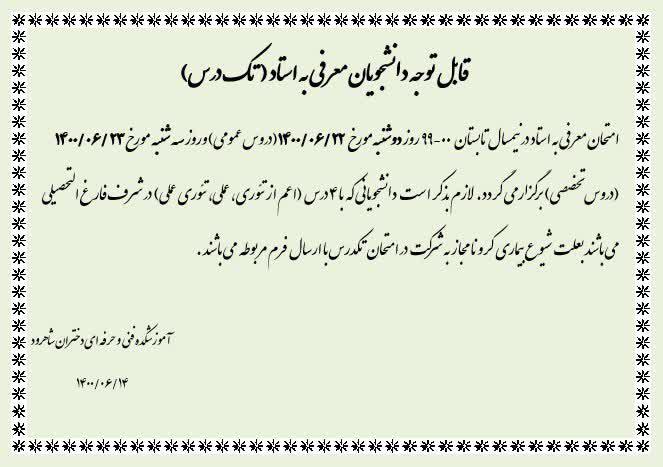 قابل توجه دانشجویان معرفی به استاد (تک درس)
امتحان معرفی به استاد در نیمسال تابستان ۰۰-۹۹ روز دوشنبه مورخ ۱۴۰۰/۰۶/۲۲ (دروس عمومی) و روز سه شنبه مورخ ۱۴۰۰/۰۶/۲۳
(دروس تخصصی) برگزار می گردد. لازم بذکر است دانشجویانی که با ۴ درس (اعم از تئوری، عملی، تئوری عملی) در شرف فارغ التحصیلی
می باشند بعلت شیوع بیماری کرونا مجاز به شرکت در امتحان تکدرس با ارسال فرم مربوطه می باشند .
آموزشکده فنی و حرفه ای دختران شاهرود
۱۴۰۰/۰۶/۱۴